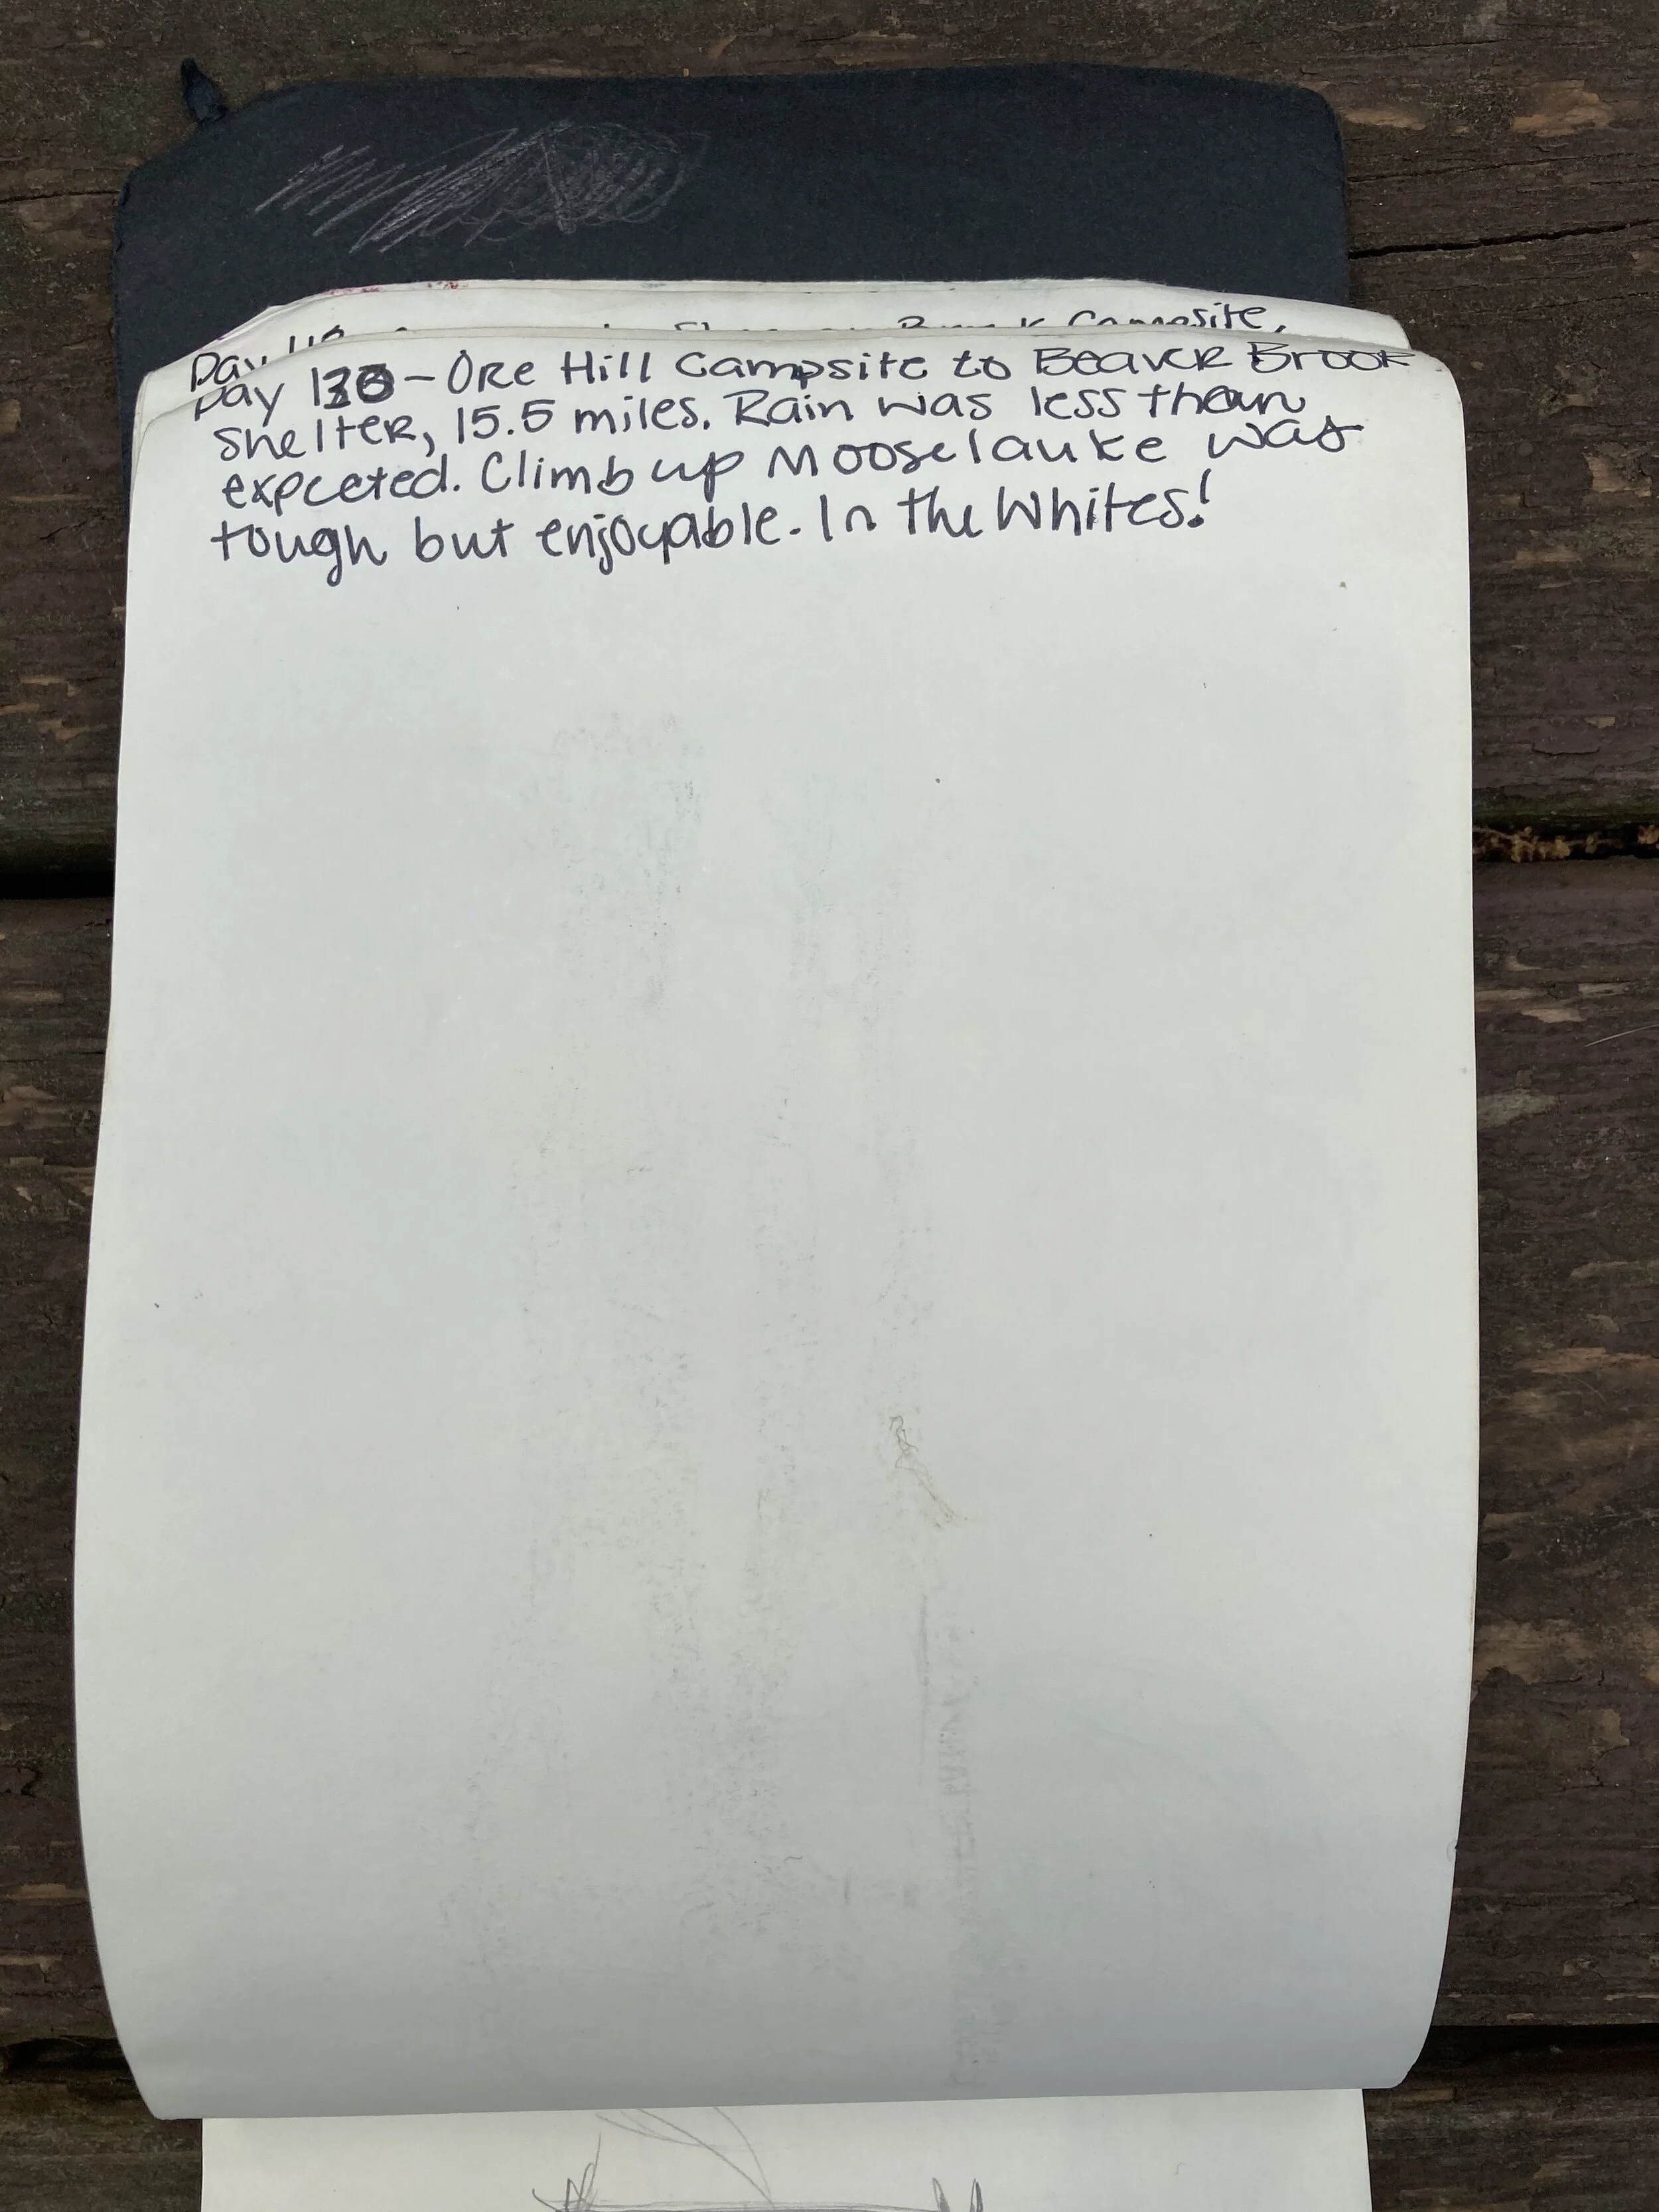 Day
Campsite,
Day 130 - Ore Hill Campsite to Beaver Brook
Shelter, 15.5 miles. Rain was less than
expceted. Climb up Mooselauke was
tough but enjoyable. In the Whites!